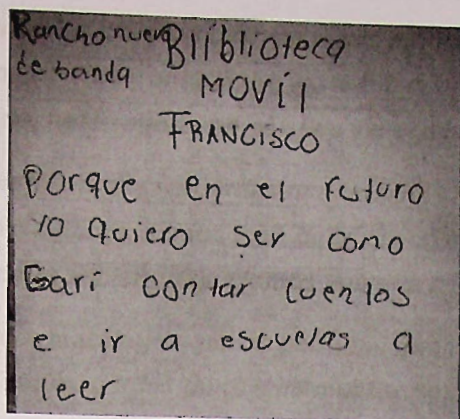 Rancho nuevo
de banda
Bliblioteca
MOVÍl
FRANCISCO
Porque en el futuro
yo quiero ser como
Gari contar cuentos
e ir a escuelas a
leer